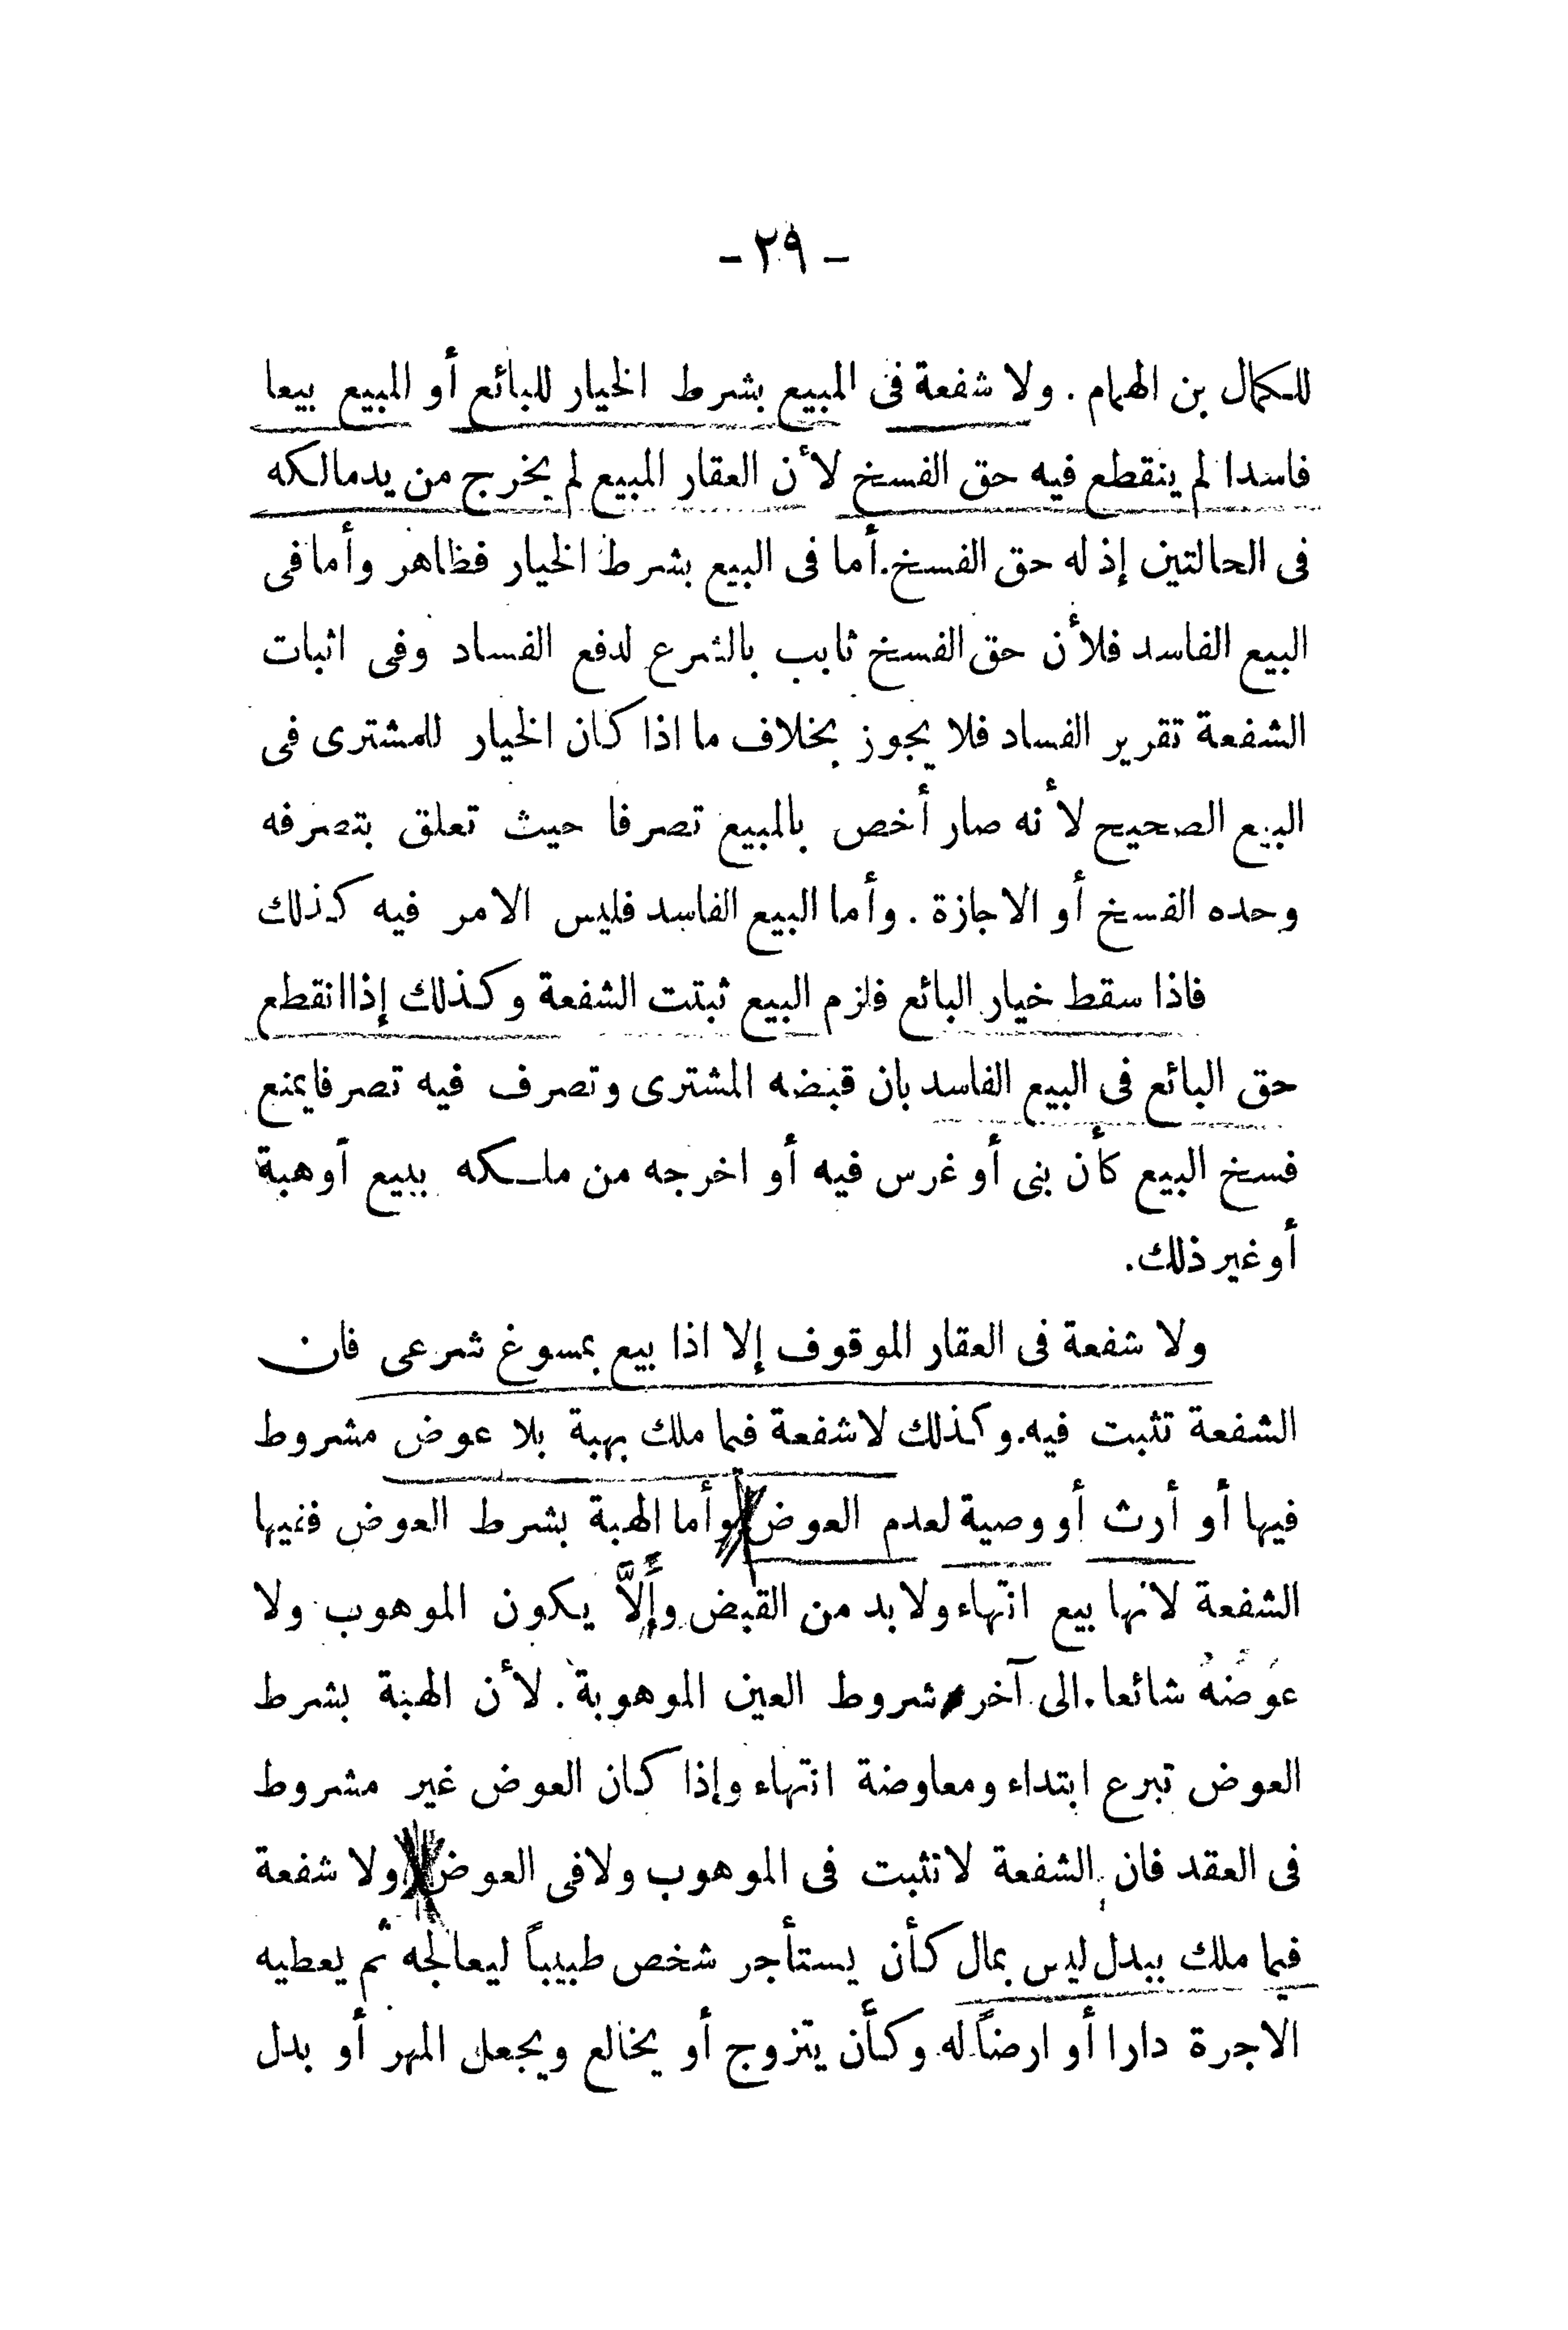 - ٢٩ -
للكمال بن الهمام . ولا شفعة فى المبيع بشرط الخيار للبائع أو المبيع بيعا
فاسدا لم ينقطع فيه حق الفسخ لأن العقار المبيع لم يخرج من يد مالكه
فى الحالتين إذ له حق الفسخ. أما فى البيع بشرط الخيار فظاهر وأما فى
البيع الفاسد فلأن حق الفسخ ثابب بالشرع لدفع الفساد وفى اثبات
الشفعة تقرير الفساد فلا يجوز بخلاف ما اذا كان الخيار للمشترى فى
البيع الصحيح لأنه صار أخص بالمبيع تصرفا حيث تعلق بتصرفه
وحده الفسخ أو الاجازة . وأما البيع الفاسد فليس الامر فيه كذلك
فاذا سقط خيار البائع فلزم البيع ثبتت الشفعة وكذلك إذا انقطع
حق البائع فى البيع الفاسد بان قبضه المشترى وتصرف فيه تصرفا يمنع
فسخ البيع كأن بنى أو غرس فيه أو اخرجه من ملكه ببيع أوهبة
أو غير ذلك.
ولا شفعة فى العقار الموقوف إلا اذا بيع بمسوغ شرعى فان
الشفعة تثبت فيه. وكذلك لا شفعة فيما ملك بهبة بلا عوض مشروط
فيها أو أرث أو وصية لعدم العوض وأما الهبة بشرط العوض ففيها
الشفعة لانها بيع انتهاء ولا بد من القبض وإَلاَّ يكون الموهوب ولا
عوَضُهُ شائعا. الى آخر شروط العين الموهوبة. لأن الهبة بشرط
العوض تبرع ابتداء ومعاوضة انتهاء وإذا كان العوض غير مشروط
فى العقد فان الشفعة لا تثبت فى الموهوب ولا فى العوض ولا شفعة
فيما ملك ببدل ليس بمال كأن يستأجر شخص طبيباً ليعالجه ثم يعطيه
الاجرة دارا أو ارضاً له وكأن يتزوج أو يخالع ويجعل المهر أو بدل